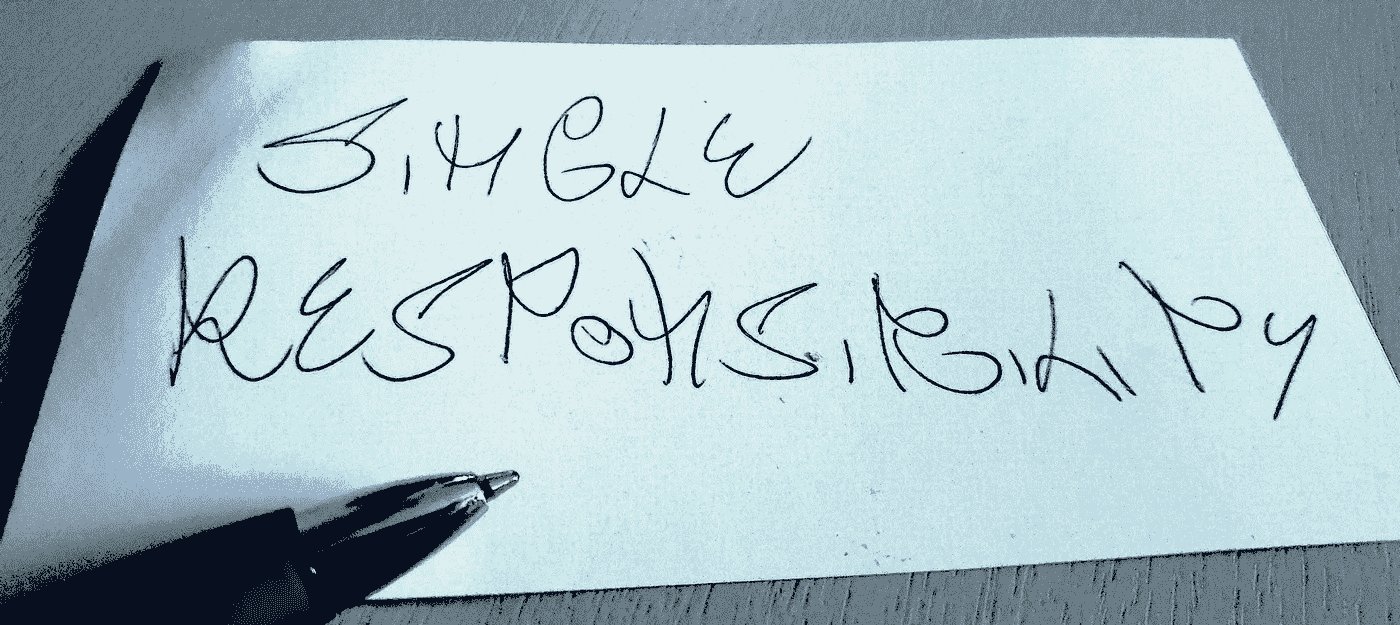 SINGLE
RESPONSIBILITY